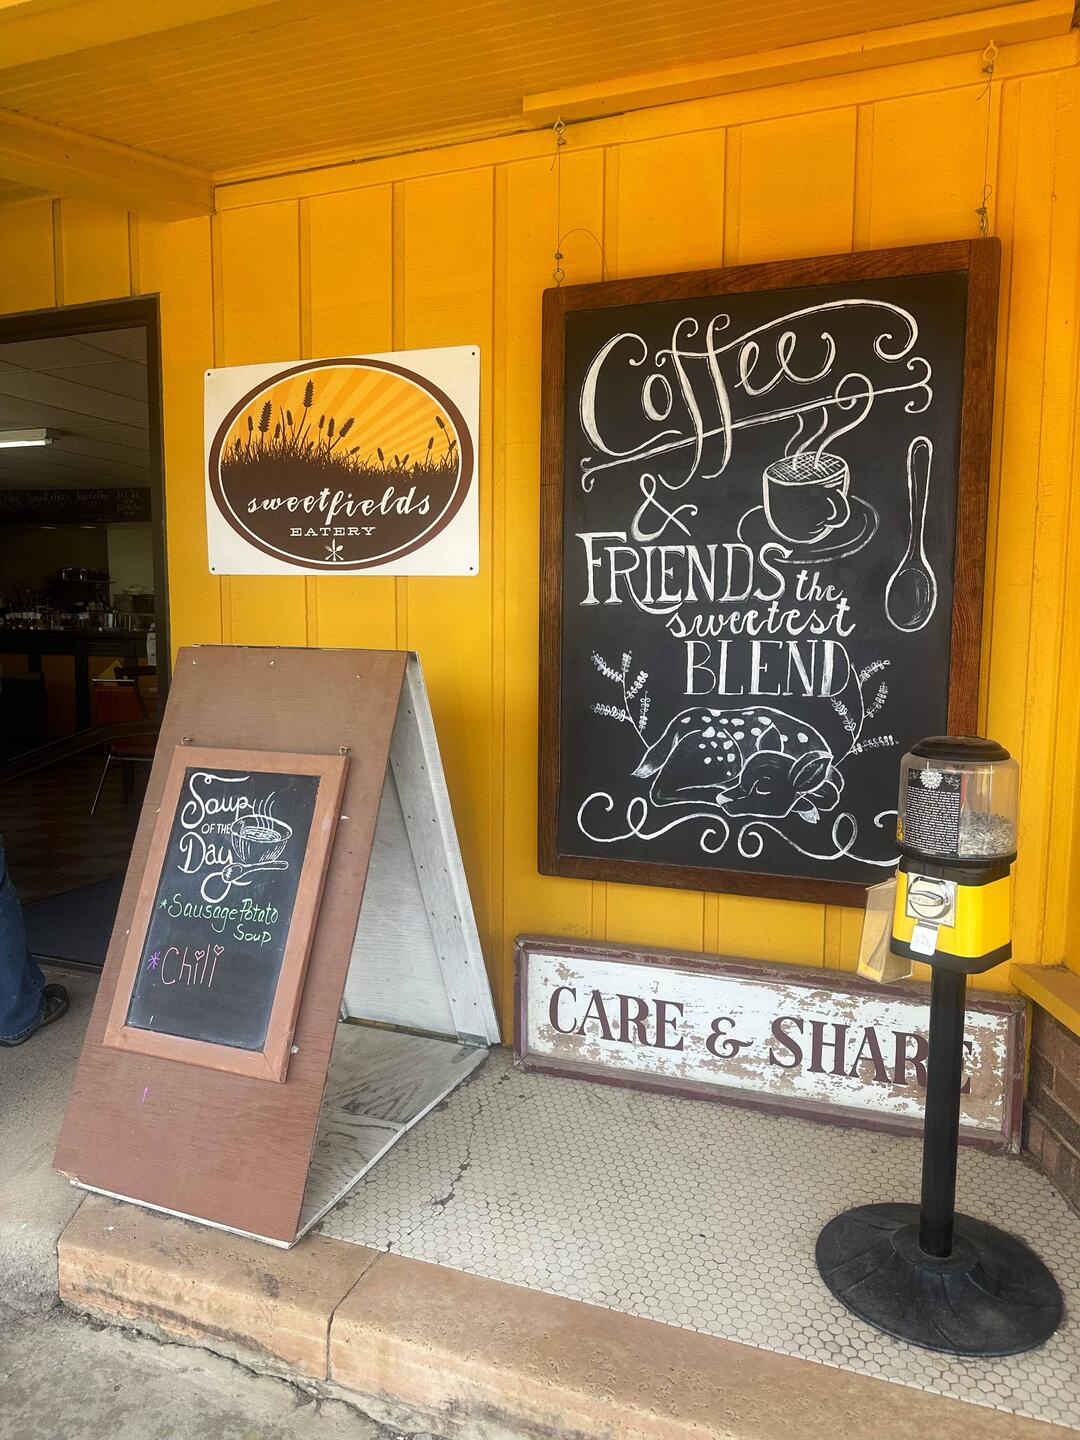 sweetfields
EATERY
Coffee
&
FRIENDS the
sweetest
BLEND
Soup
OF THE
Day
*Sausage Potato
Soup
*Chili
CARE & SHARE